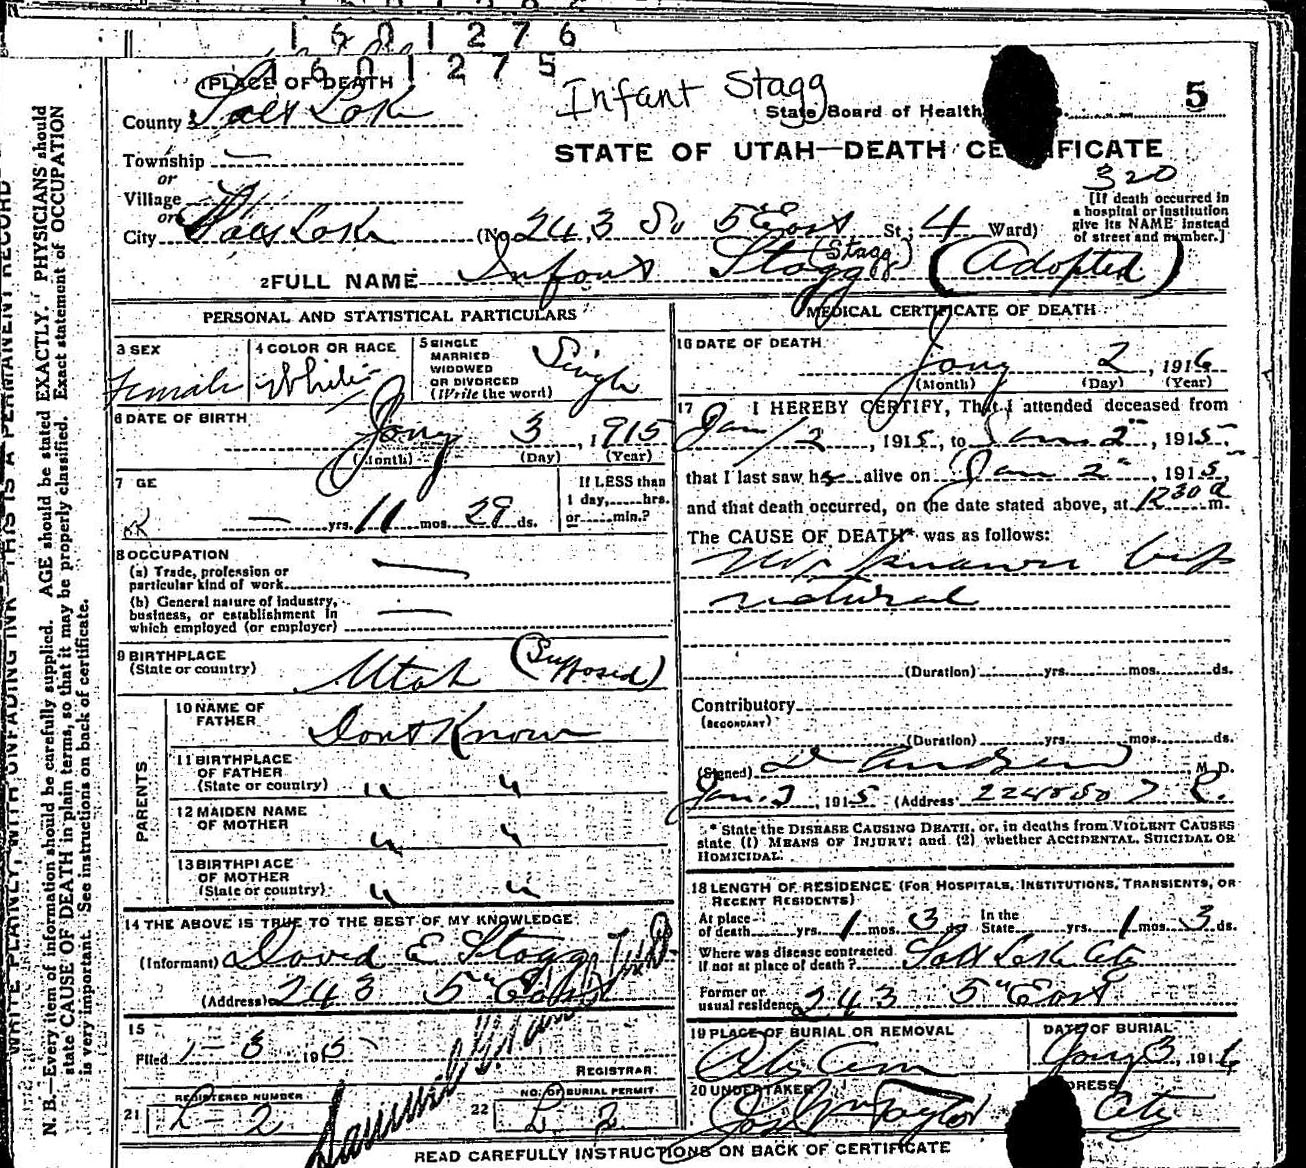 1601276
1601275
Infant Stagg
State Board of Health
5
STATE OF UTAH—DEATH CERTIFICATE
320
[If death occurred in
a hospital or institution
give its NAME instead
of street and number.]
1 PLACE OF DEATH
County Salt Lake
Township —
or
Village
or
City Salt Lake (No. 243 So 5 East St; 4 Ward)
2 FULL NAME Infant Stagg (Stagg) (Adopted)
PERSONAL AND STATISTICAL PARTICULARS
3 SEX
Female
4 COLOR OR RACE
White
5 SINGLE
MARRIED
WIDOWED
OR DIVORCED
(Write the word)
Single
6 DATE OF BIRTH
Jany 3, 1915
(Month) (Day) (Year)
7 GE
— yrs. 11 mos. 29 ds.
If LESS than
1 day,......hrs.
or......min.?
8 OCCUPATION
(a) Trade, profession or
particular kind of work
(b) General nature of industry,
business, or establishment in
which employed (or employer)
9 BIRTHPLACE
(State or country)
Utah (Supposed)
PARENTS
10 NAME OF
FATHER
Dont Know
11 BIRTHPLACE
OF FATHER
(State or country)
" "
12 MAIDEN NAME
OF MOTHER
" "
13 BIRTHPLACE
OF MOTHER
(State or country)
" "
14 THE ABOVE IS TRUE TO THE BEST OF MY KNOWLEDGE
(Informant) David E Stagg
(Address) 243 5" East
15
Filed 1-3 1915
REGISTRAR
21 REGISTERED NUMBER
L-2
22 NO. OF BURIAL PERMIT
L 2
MEDICAL CERTIFICATE OF DEATH
16 DATE OF DEATH
Jany 2, 1916
(Month) (Day) (Year)
17 I HEREBY CERTIFY, That I attended deceased from
Jan 2, 1915, to Jan 2", 1915,
that I last saw h alive on Jan 2", 1915
and that death occurred, on the date stated above, at 1230 a m.
The CAUSE OF DEATH* was as follows:
natural
(Duration) yrs. mos. ds.
Contributory
(SECONDARY)
(Duration) yrs. mos. ds.
(Signed) M. D.
Jan. 3, 1915 (Address)
* State the DISEASE CAUSING DEATH, or, in deaths from VIOLENT CAUSES
state (1) MEANS OF INJURY; and (2) whether ACCIDENTAL, SUICIDAL OR
HOMICIDAL.
18 LENGTH OF RESIDENCE (FOR HOSPITALS, INSTITUTIONS, TRANSIENTS, OR
RECENT RESIDENTS)
At place
of death yrs. 1 mos. 3 ds. In the
State yrs. 1 mos. 3 ds.
Where was disease contracted
if not at place of death? Salt Lake City
Former or
usual residence 243 5" East
19 PLACE OF BURIAL OR REMOVAL
City Cem
DATE OF BURIAL
Jany 3, 1916
20 UNDERTAKER
Jos Wm Taylor
DRESS
City
READ CAREFULLY INSTRUCTIONS ON BACK OF CERTIFICATE
WRITE PLAINLY, WITH UNFADING INK—THIS IS A PERMANENT RECORD
N. B.—Every item of information should be carefully supplied. AGE should be stated EXACTLY. PHYSICIANS should
state CAUSE OF DEATH in plain terms, so that it may be properly classified. Exact statement of OCCUPATION
is very important. See instructions on back of certificate.